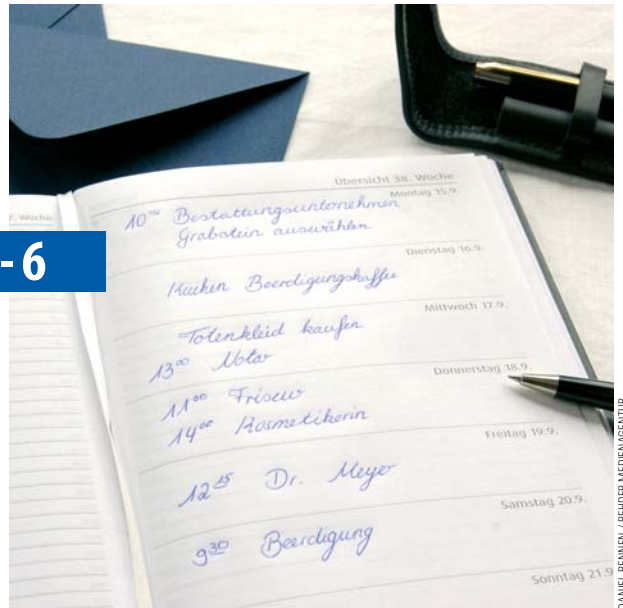 7. Woche
Übersicht 38. Woche
Montag 15.9.
10⁰⁰ Bestattungsunternehmen
Grabstein auswählen
- 6
Dienstag 16.9.
Kuchen Beerdigungskaffee
Mittwoch 17.9.
Totenkleid kaufen
13⁰⁰ Notar
Donnerstag 18.9.
11⁰⁰ Friseur
14⁰⁰ Kosmetikerin
Freitag 19.9.
12¹⁵ Dr. Meyer
Samstag 20.9.
9³⁰ Beerdigung
Sonntag 21.9
DANIEL RENNEN / REHDER MEDIENAGENTUR